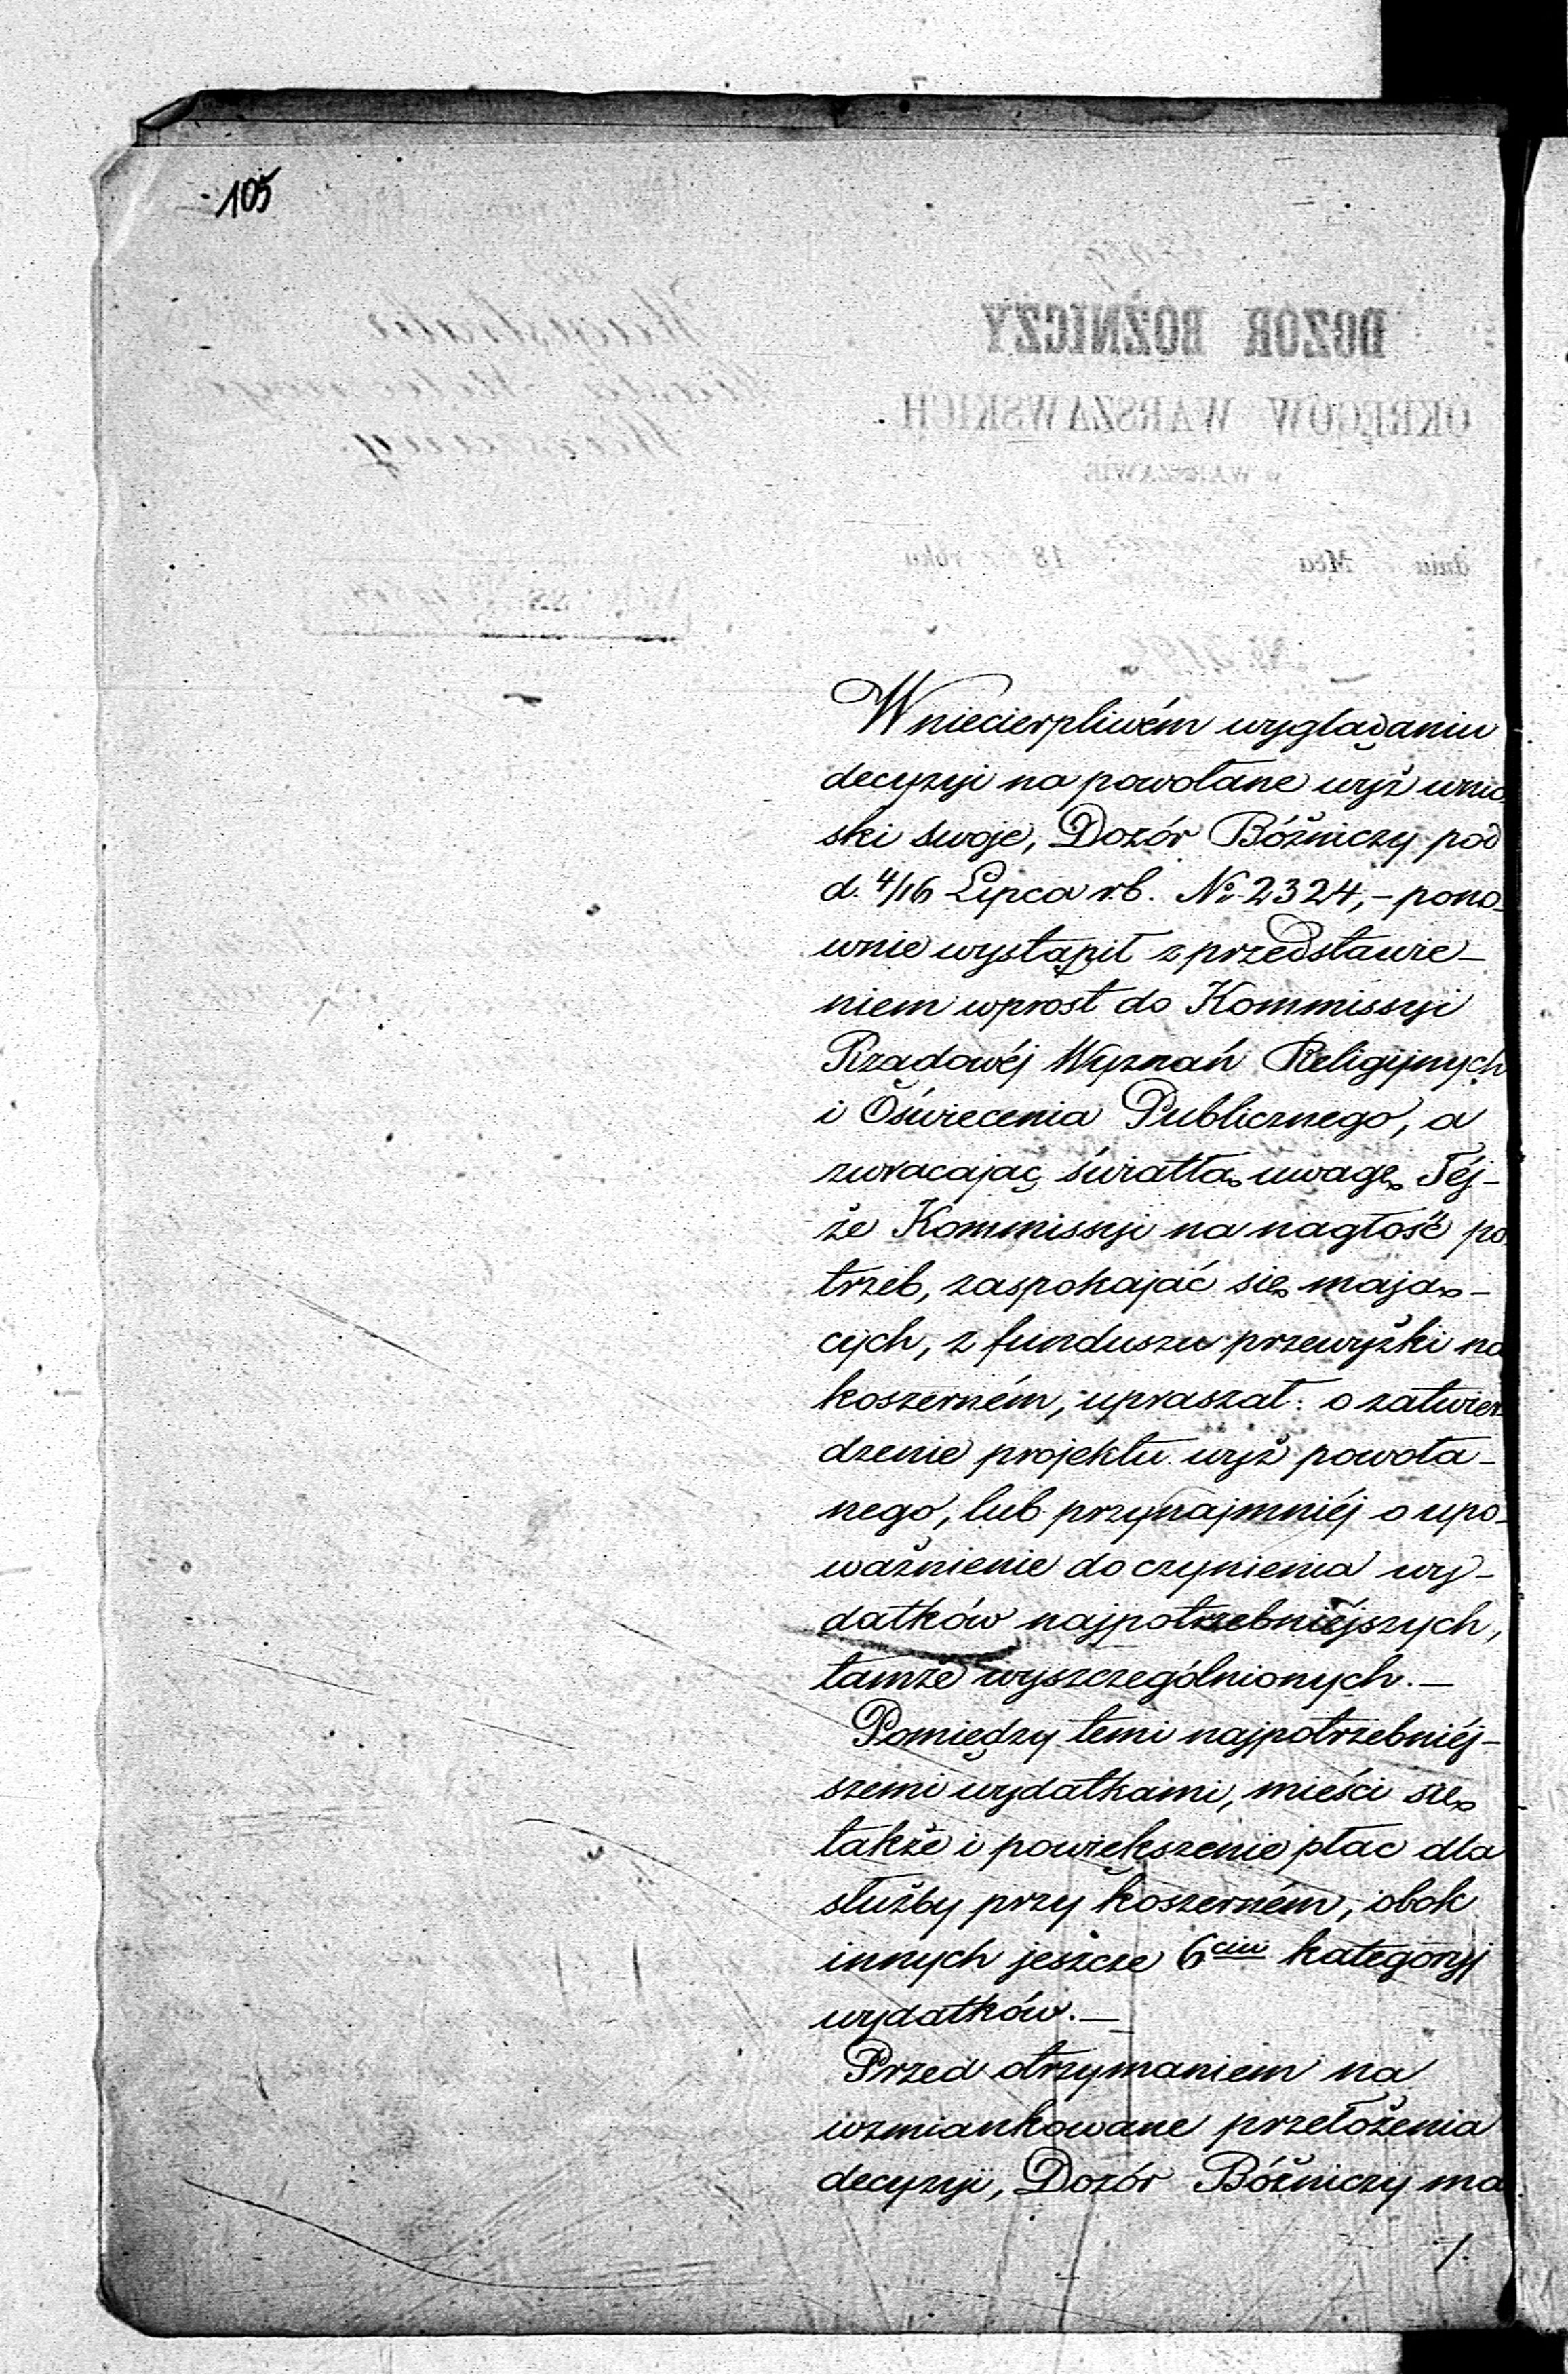 105
W niecierpliwém wyglądaniu
decyzyi na powołane wyż wnio
ski swoje, Dozór Bóżniczy pod
d. 4/16 Lipca r.b. № 2324,- pono-
wnie wystąpił z przedstawie-
niem wprost do Kommissyi
Rządowéj Wyznań Religijnych
i Oświecenia Publicznego, a
zwracając światłą uwagę Téj-
że Kommissyi na nagłość po
trzeb, zaspokajać się mają-
cych, z funduszu przewyżki na
koszerném, upraszał: o zatwier
dzenie projektu wyż powoła-
nego, lub przynajmniéj o upo-
ważnienie do czynienia wy-
datków najpotrzebniejszych,
tamże wyszczególnionych.—
Pomiędzy temi najpotrzebniéj-
szemi wydatkami, mieści się
także i powiększenie płac dla
służby przy koszerném, obok
innych jeszcze 6ciu kategoryj
wydatków.—
Przed otrzymaniem na
wzmiankowane przełożenia
decyzyi, Dozór Bóżniczy ma
/.
DOZÓR BÓŻNICZY
OKRĘGÓW WARSZAWSKICH
w WARSZAWIE
dnia Mca 18 roku